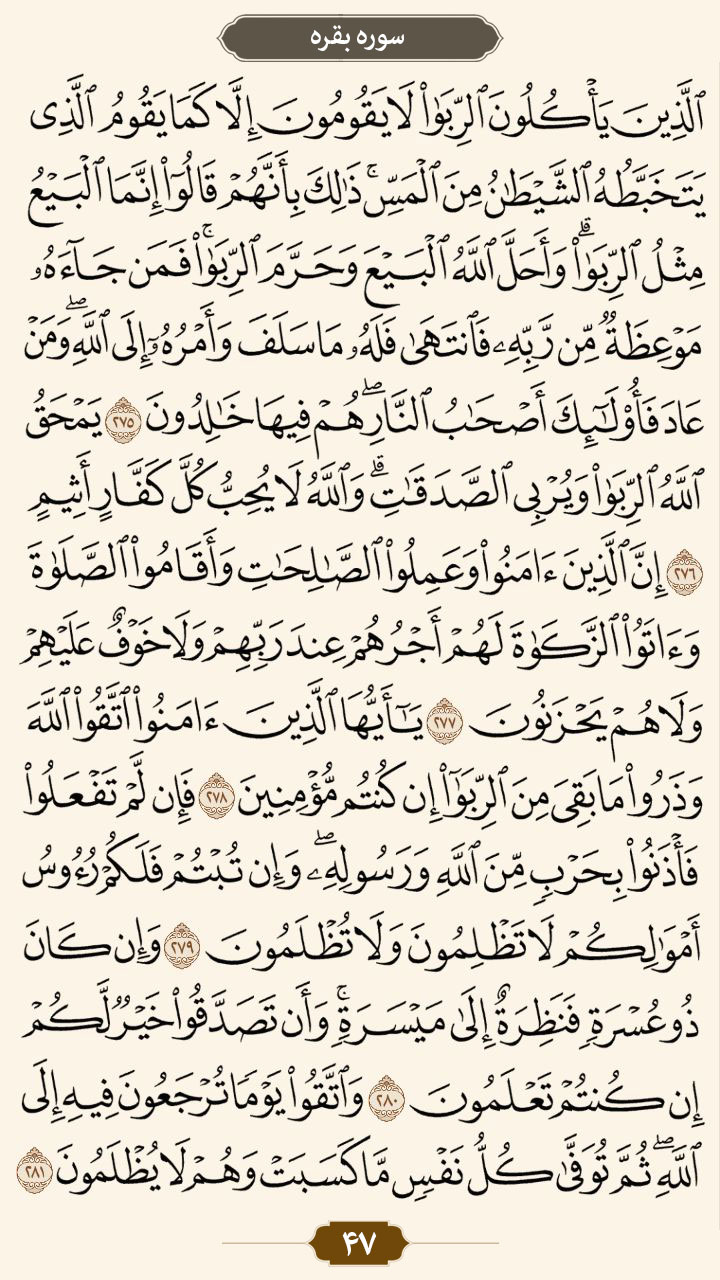 سوره بقره
ٱلَّذِينَ يَأۡكُلُونَ ٱلرِّبَوٰاْ لَا يَقُومُونَ إِلَّا كَمَا يَقُومُ ٱلَّذِى
يَتَخَبَّطُهُ ٱلشَّيۡطَٰنُ مِنَ ٱلۡمَسِّۚ ذَٰلِكَ بِأَنَّهُمۡ قَالُوٓاْ إِنَّمَا ٱلۡبَيۡعُ
مِثۡلُ ٱلرِّبَوٰاْۗ وَأَحَلَّ ٱللَّهُ ٱلۡبَيۡعَ وَحَرَّمَ ٱلرِّبَوٰاْۚ فَمَن جَآءَهُۥ
مَوۡعِظَةٞ مِّن رَّبِّهِۦ فَٱنتَهَىٰ فَلَهُۥ مَا سَلَفَ وَأَمۡرُهُۥٓ إِلَى ٱللَّهِۖ وَمَنۡ
عَادَ فَأُوْلَٰٓئِكَ أَصۡحَٰبُ ٱلنَّارِۖ هُمۡ فِيهَا خَٰلِدُونَ ٢٧٥ يَمۡحَقُ
ٱللَّهُ ٱلرِّبَوٰاْ وَيُرۡبِى ٱلصَّدَقَٰتِۗ وَٱللَّهُ لَا يُحِبُّ كُلَّ كَفَّارٍ أَثِيمٍ
٢٧٦ إِنَّ ٱلَّذِينَ ءَامَنُواْ وَعَمِلُواْ ٱلصَّٰلِحَٰتِ وَأَقَامُواْ ٱلصَّلَوٰةَ
وَءَاتَوُاْ ٱلزَّكَوٰةَ لَهُمۡ أَجۡرُهُمۡ عِندَ رَبِّهِمۡ وَلَا خَوۡفٌ عَلَيۡهِمۡ
وَلَا هُمۡ يَحۡزَنُونَ ٢٧٧ يَٰٓأَيُّهَا ٱلَّذِينَ ءَامَنُواْ ٱتَّقُواْ ٱللَّهَ
وَذَرُواْ مَا بَقِىَ مِنَ ٱلرِّبَوٰٓاْ إِن كُنتُم مُّؤۡمِنِينَ ٢٧٨ فَإِن لَّمۡ تَفۡعَلُواْ
فَأۡذَنُواْ بِحَرۡبٖ مِّنَ ٱللَّهِ وَرَسُولِهِۦۖ وَإِن تُبۡتُمۡ فَلَكُمۡ رُءُوسُ
أَمۡوَٰلِكُمۡ لَا تَظۡلِمُونَ وَلَا تُظۡلَمُونَ ٢٧٩ وَإِن كَانَ
ذُو عُسۡرَةٖ فَنَظِرَةٌ إِلَىٰ مَيۡسَرَةٖۚ وَأَن تَصَدَّقُواْ خَيۡرٞ لَّكُمۡ
إِن كُنتُمۡ تَعۡلَمُونَ ٢٨٠ وَٱتَّقُواْ يَوۡمٗا تُرۡجَعُونَ فِيهِ إِلَى
ٱللَّهِۖ ثُمَّ تُوَفَّىٰ كُلُّ نَفۡسٖ مَّا كَسَبَتۡ وَهُمۡ لَا يُظۡلَمُونَ ٢٨١
۴۷